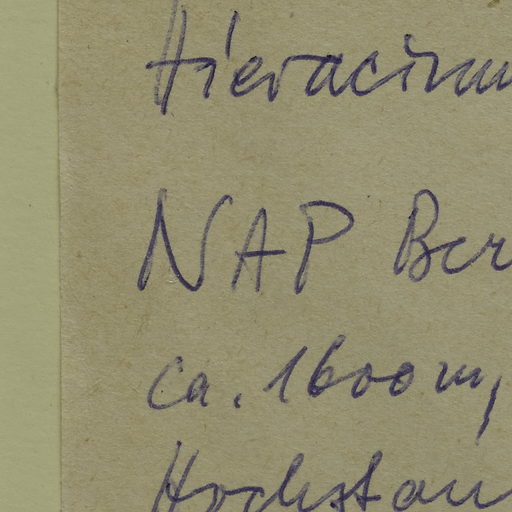 Hieracium
NAP Ber
ca. 1600 m,
Hochstau